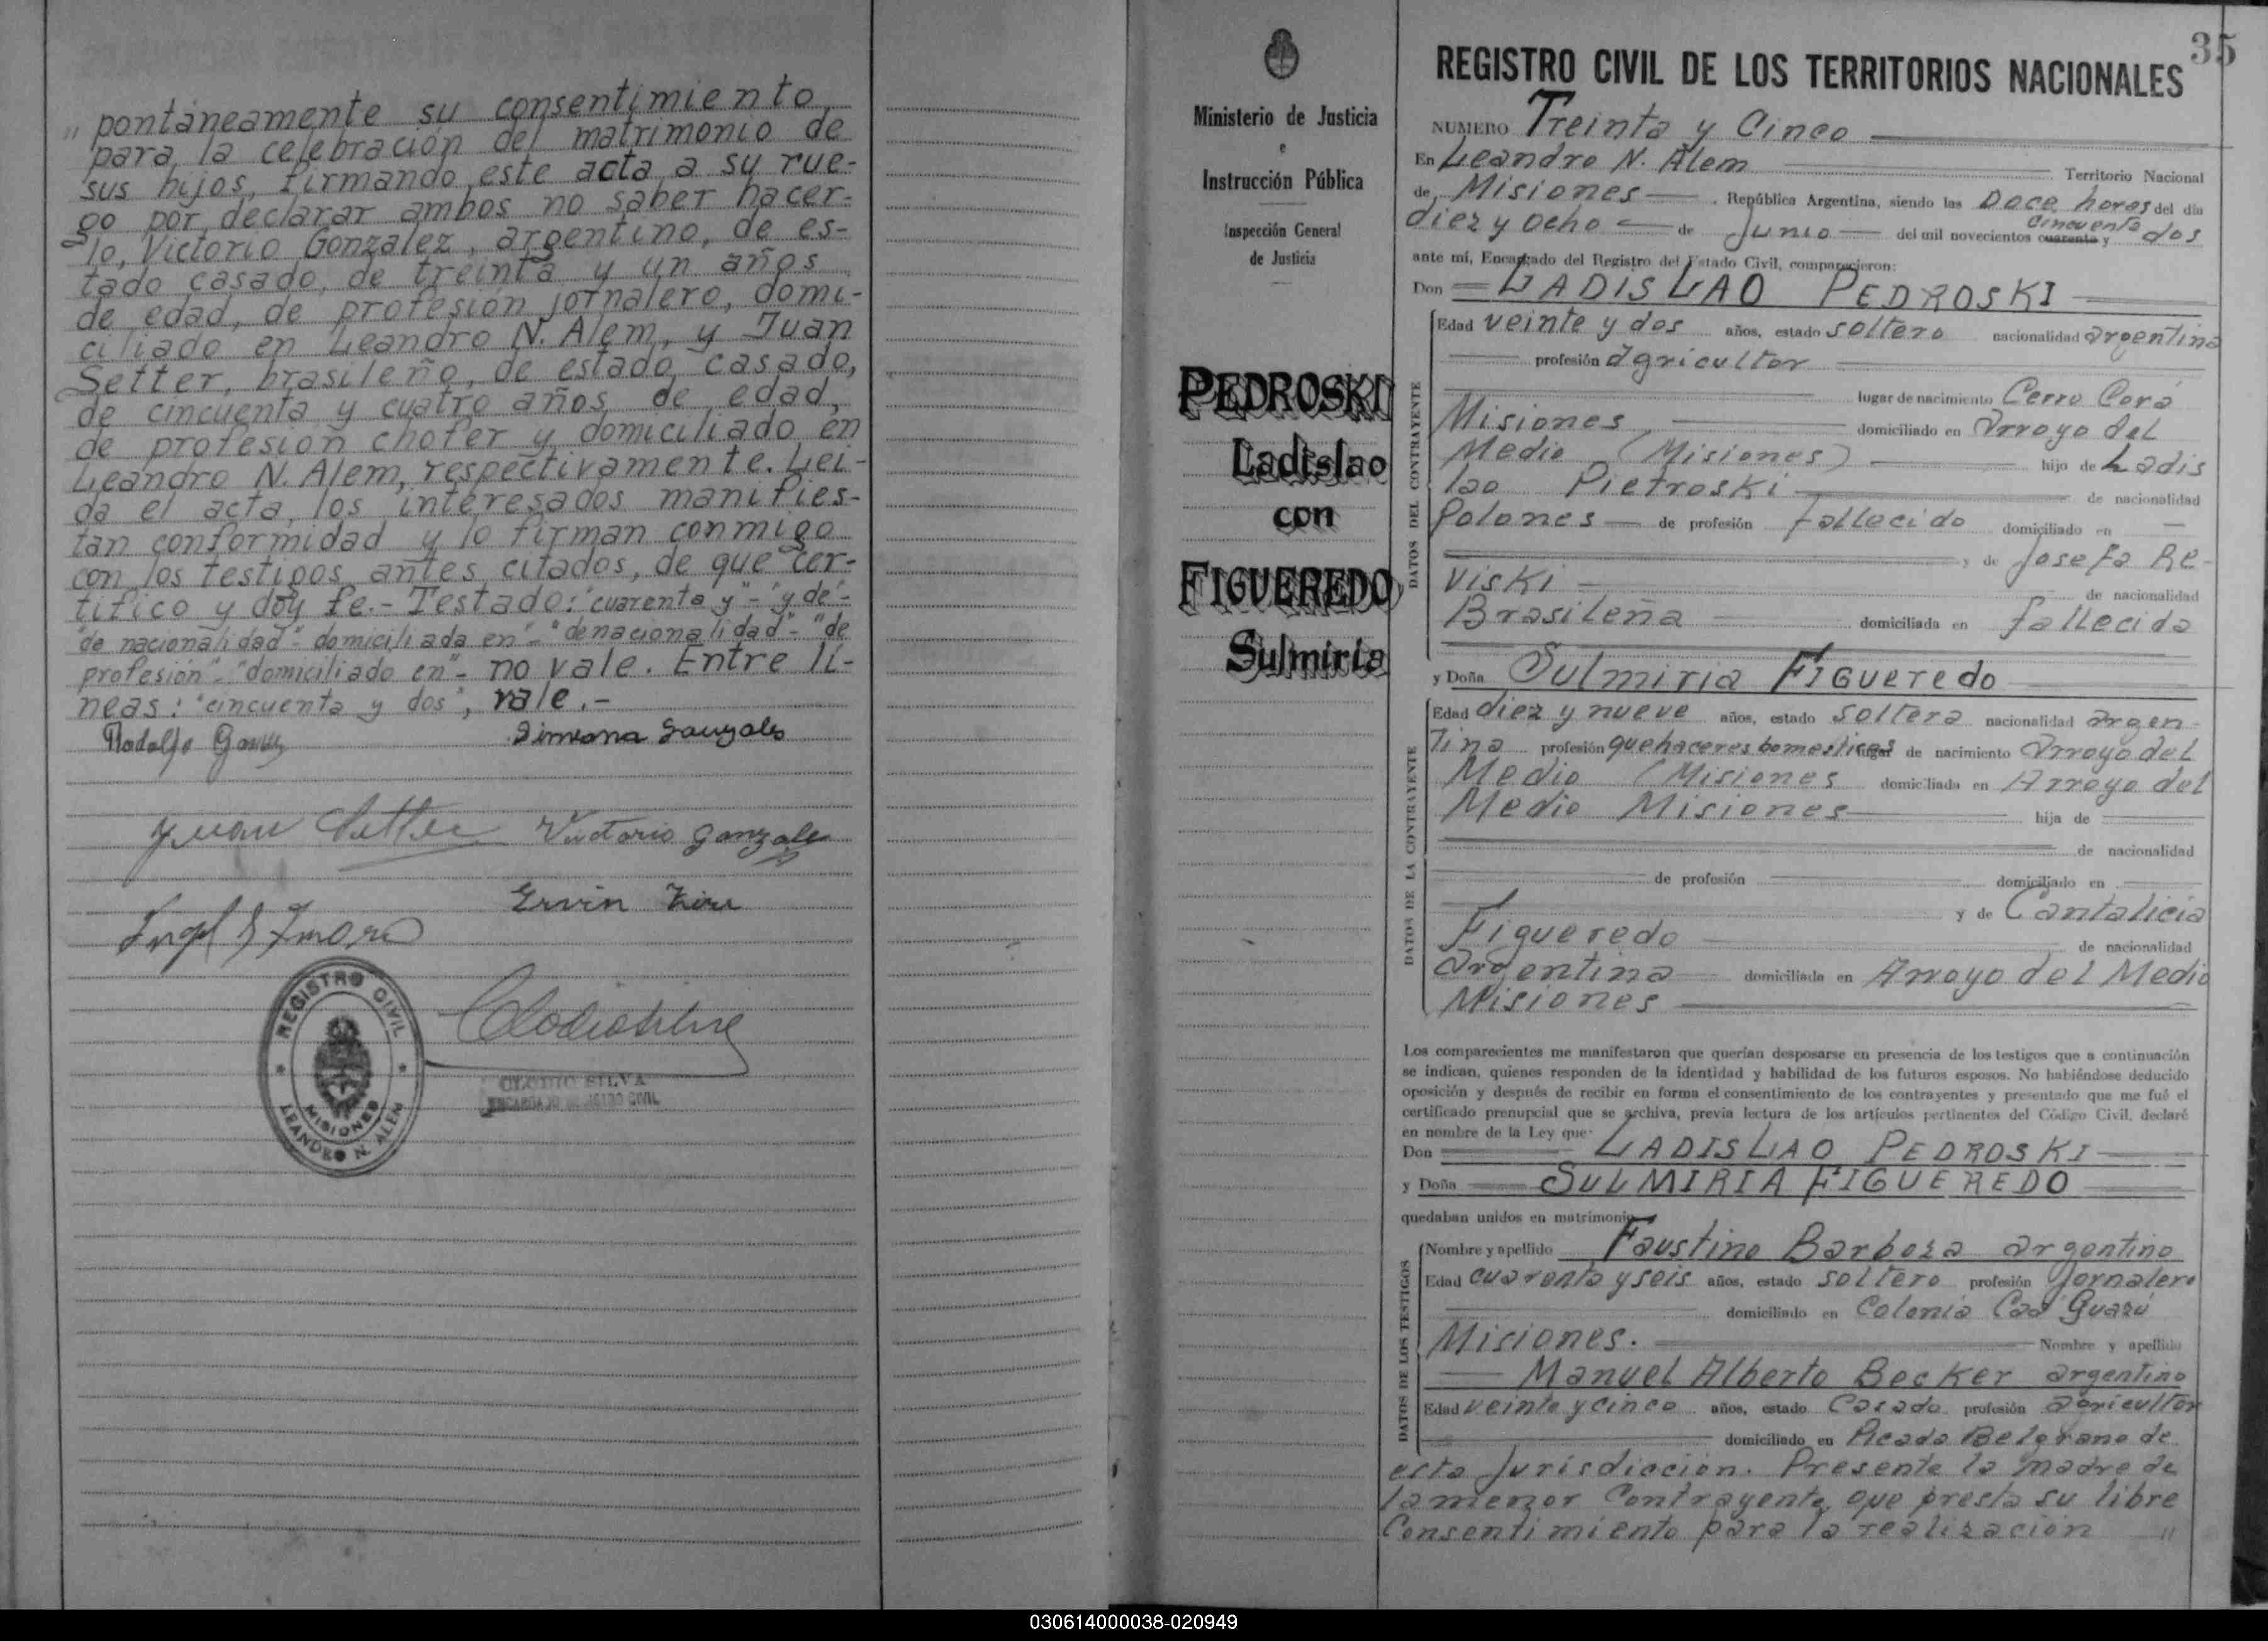 " pontáneamente su consentimiento
para la celebración del matrimonio de
sus hijos, firmando este acta a su rue-
go por declarar ambos no saber hacer-
lo, Victorio Gonzalez, argentino, de es-
tado casado, de treinta y un años
de edad, de profesión jornalero, domi-
ciliado en Leandro N. Alem, y Juan
Setter, brasileño, de estado casado,
de cincuenta y cuatro años de edad,
de profesión chofer y domiciliado en
Leandro N. Alem, respectivamente. Leí-
da el acta, los interesados manifies-
tan conformidad y lo firman conmigo
con los testigos antes citados, de que cer-
tifico y doy fe.- Testado: "cuarenta y"- "y de"-
"de nacionalidad"- domiciliada en"- "de nacionalidad"- "de
profesión"- "domiciliado en"- no vale. Entre lí-
neas: "cincuenta y dos", vale.-
Rodolfo Simeona Gonzales
Juan Setter Victorio Gonzale
Ervin
REGISTRO CIVIL
MISIONES
LEANDRO N. ALEM
CLODIO SILVA
ENCARGADO REGISTRO CIVIL
Ministerio de Justicia
e
Instrucción Pública
Inspección General
de Justicia
PEDROSKI
Ladislao
con
FIGUEREDO
Sulmiria
35
REGISTRO CIVIL DE LOS TERRITORIOS NACIONALES
NUMERO Treinta y Cinco
En Leandro N. Alem Territorio Nacional
de Misiones . República Argentina, siendo las Doce horas del día
diez y ocho de Junio del mil novecientos cuarenta y cincuenta dos
ante mí, Encargado del Registro del Estado Civil, comparecieron:
Don LADISLAO PEDROSKI
DATOS DEL CONTRAYENTE
Edad veinte y dos años, estado soltero nacionalidad argentina
profesión agricultor
lugar de nacimiento Cerro Corá
Misiones domiciliado en Arroyo del
Medio (Misiones) hijo de Ladis
lao Pietroski de nacionalidad
Polones de profesión fallecido domiciliado en
y de Josefa Re-
viski de nacionalidad
Brasileña domiciliada en fallecida
y Doña Sulmiria Figueredo
DATOS DE LA CONTRAYENTE
Edad diez y nueve años, estado soltera nacionalidad argen-
tina profesión quehaceres domesticos lugar de nacimiento Arroyo del
Medio (Misiones domiciliada en Arroyo del
Medio Misiones hija de
de nacionalidad
de profesión domiciliado en
y de Cantalicia
Figueredo de nacionalidad
Argentina domiciliada en Arroyo del Medio
Misiones
Los comparecientes me manifestaron que querían desposarse en presencia de los testigos que a continuación
se indican, quienes responden de la identidad y habilidad de los futuros esposos. No habiéndose deducido
oposición y después de recibir en forma el consentimiento de los contrayentes y presentado que me fué el
certificado prenupcial que se archiva, previa lectura de los artículos pertinentes del Código Civil, declaré
en nombre de la Ley que:
Don LADISLAO PEDROSKI
y Doña SULMIRIA FIGUEREDO
quedaban unidos en matrimonio
DATOS DE LOS TESTIGOS
Nombre y apellido Faustino Barboza argentino
Edad cuarenta y seis años, estado soltero profesión Jornalero
domiciliado en Colonia Caá Guazú
Misiones. Nombre y apellido
Manuel Alberto Becker argentino
Edad veinte y cinco años, estado Casado profesión agricultor
domiciliado en Picada Belgrano de
esta Jurisdiccion. Presente la madre de
la menor Contrayente, que presta su libre
Consentimiento para la realización "
030614000038-020949